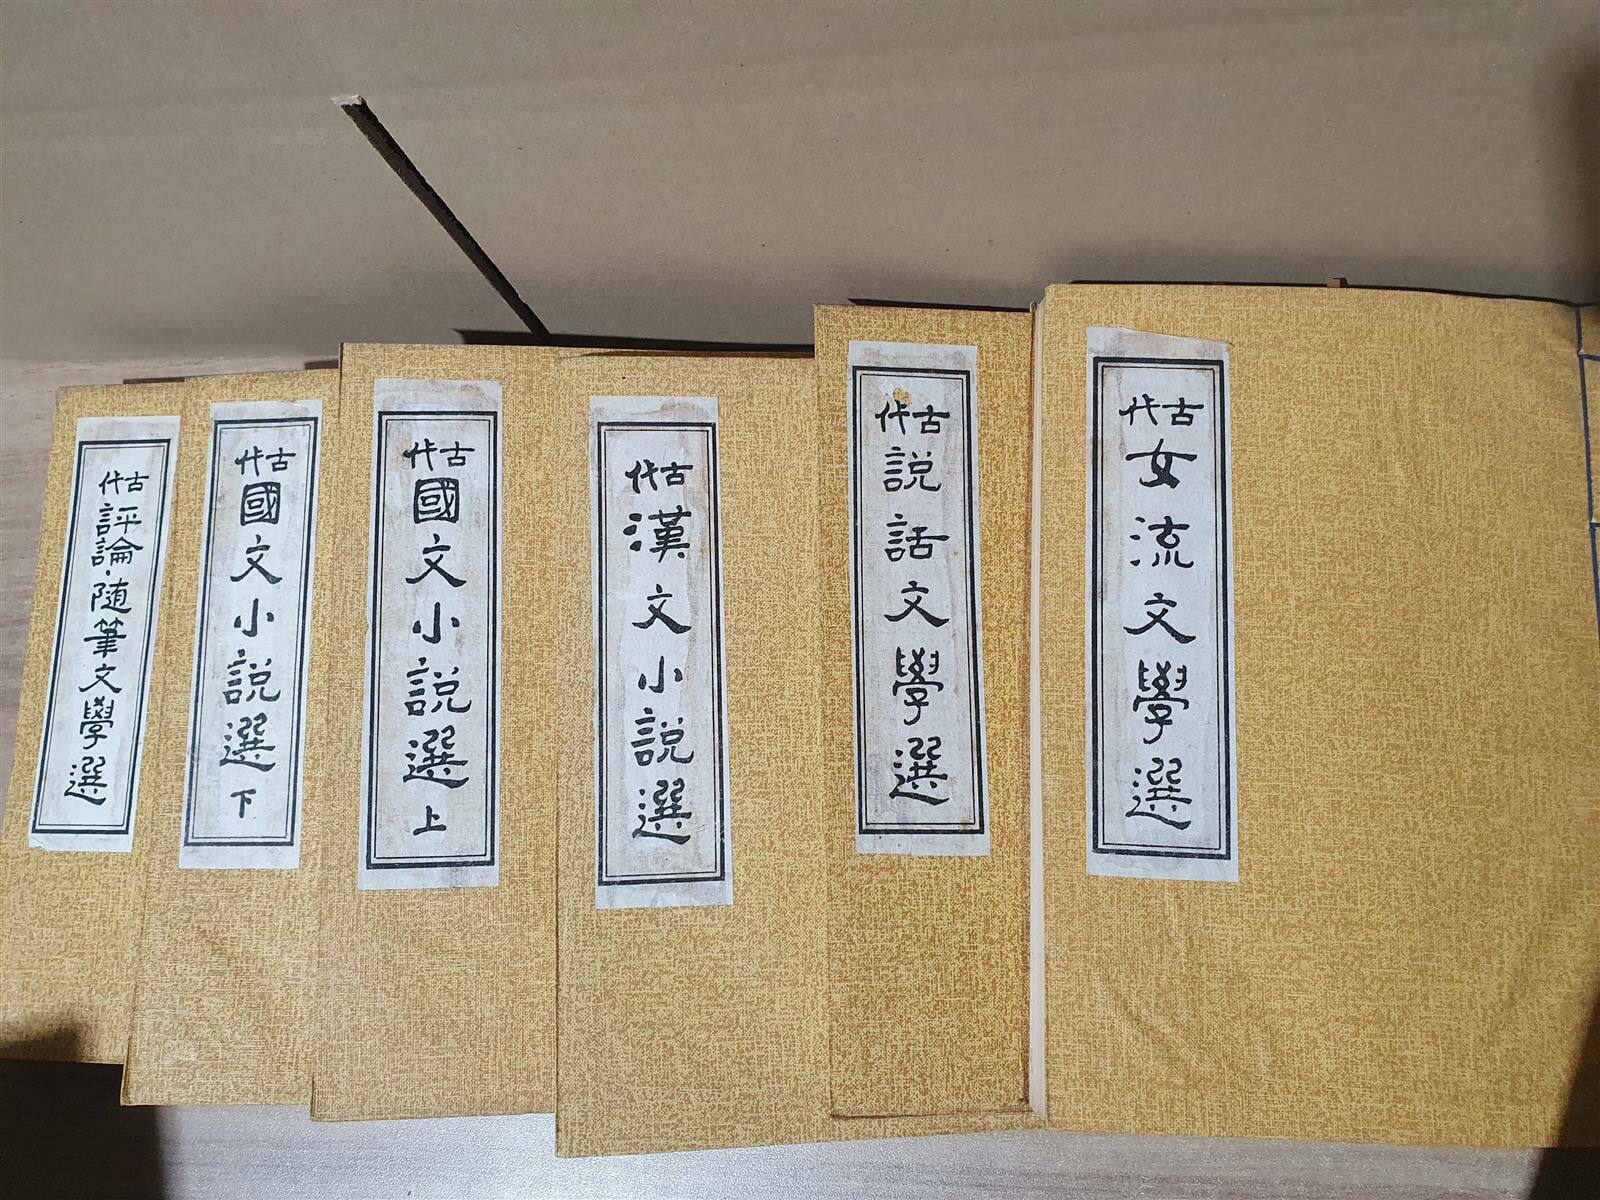 古代女流文學選
古代說話文學選
古代漢文小說選
古代國文小說選上
古代國文小說選下
古代評論·随筆文學選